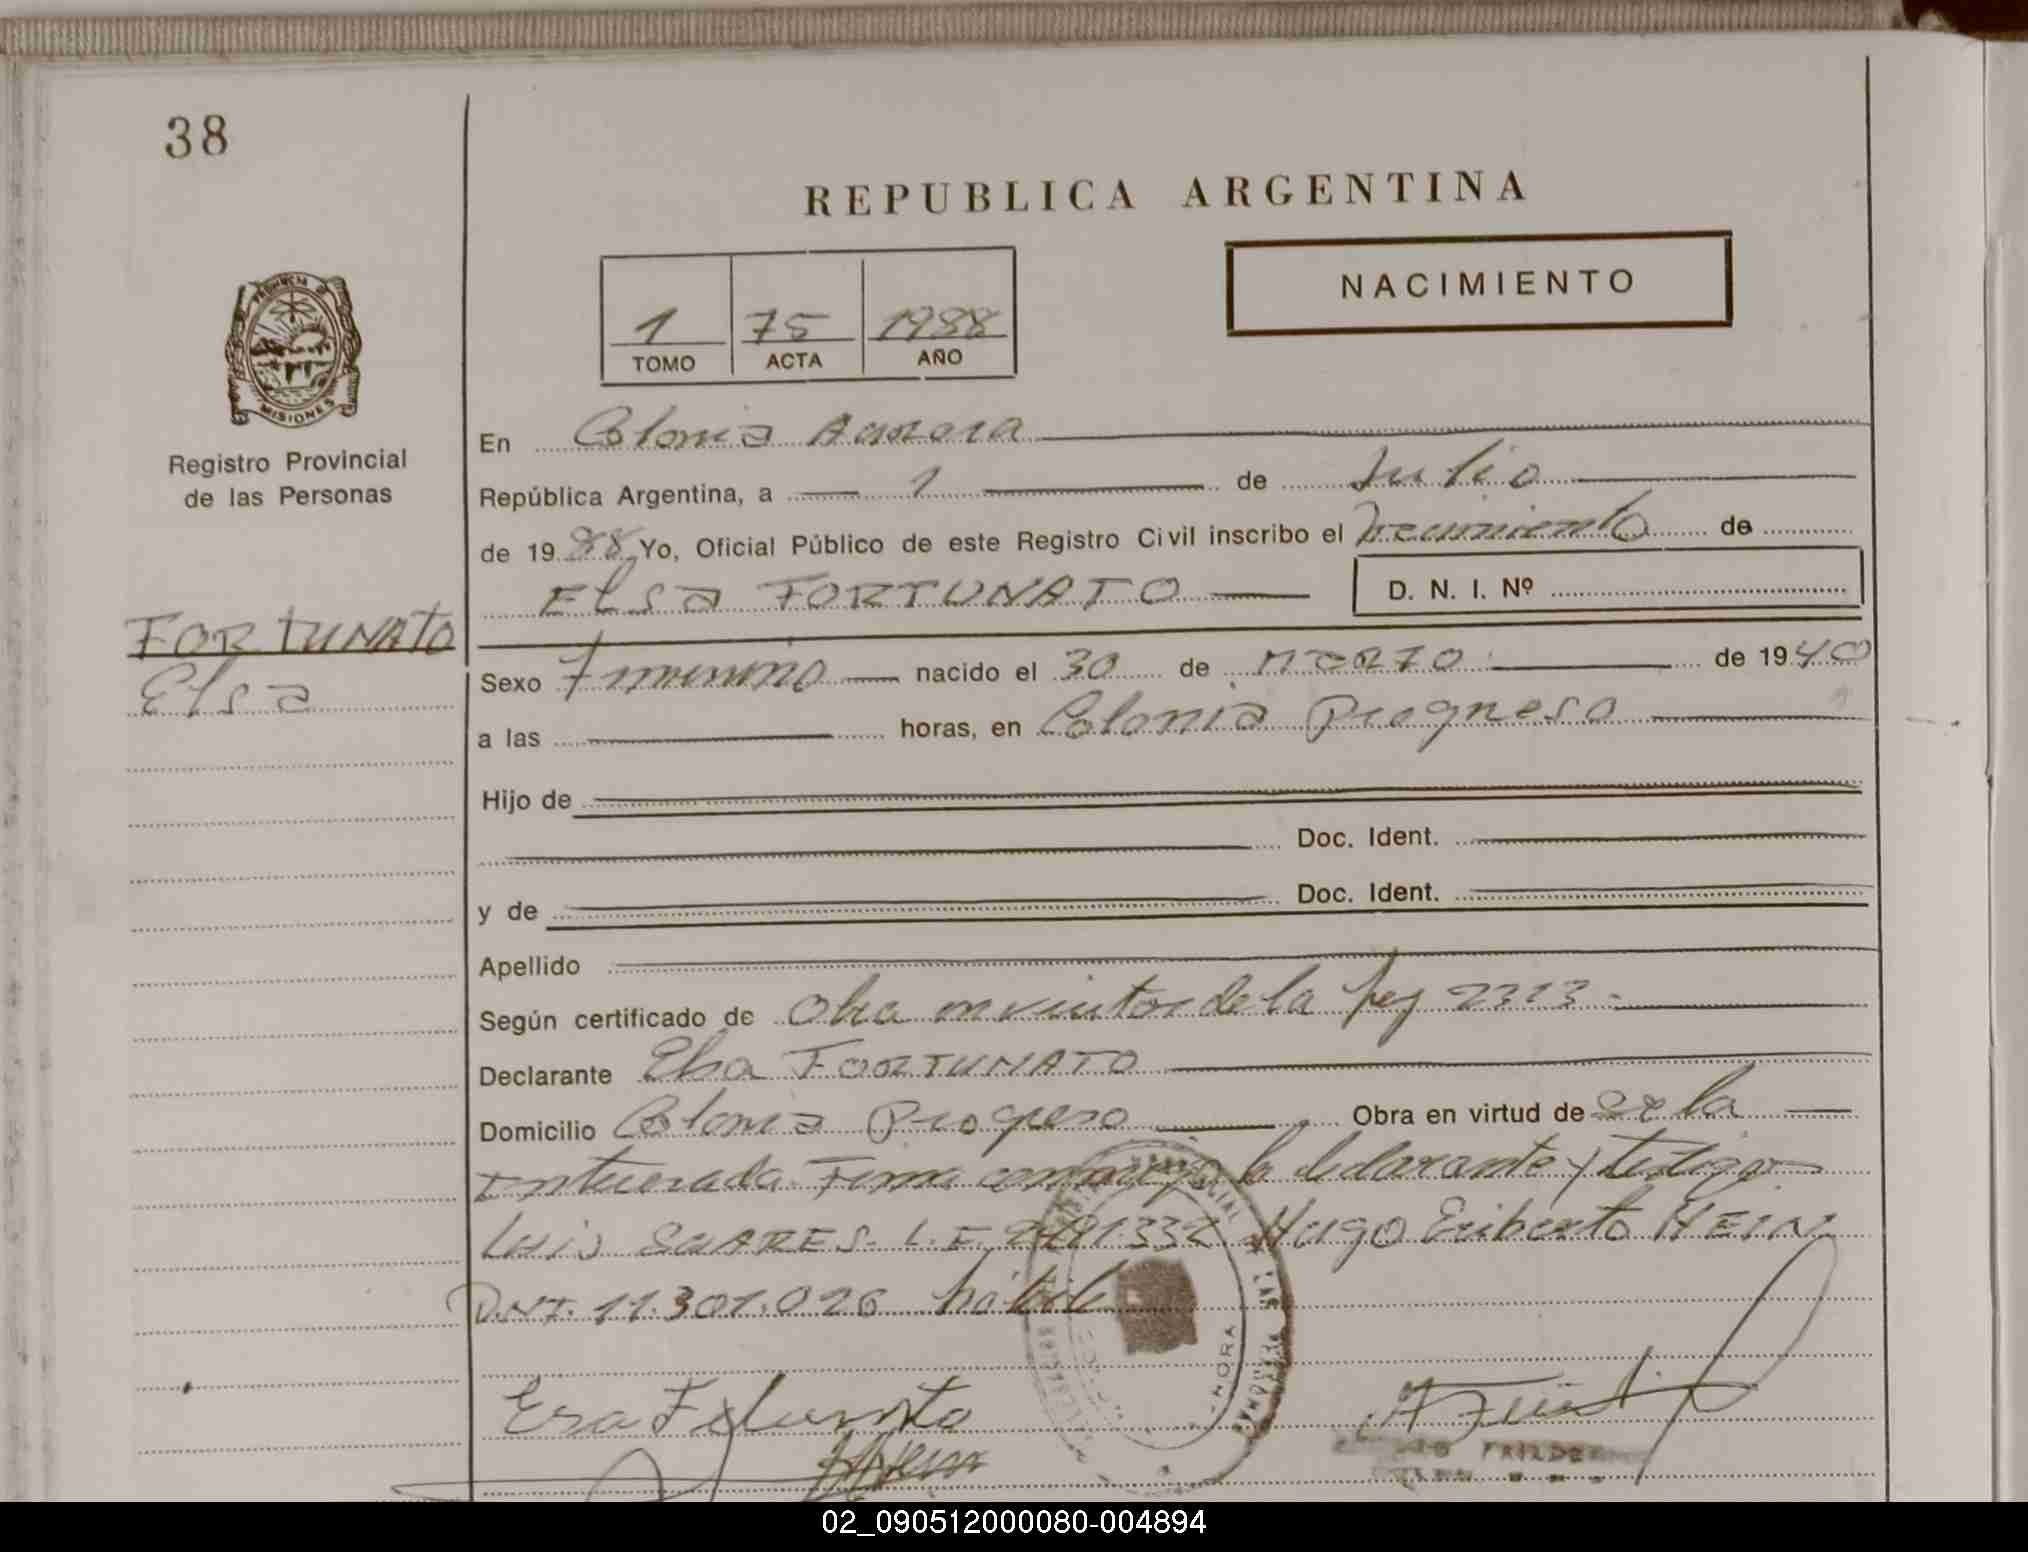 38
REPUBLICA ARGENTINA
NACIMIENTO
1 75 1988
TOMO ACTA AÑO
PROVINCIA DE
MISIONES
Registro Provincial
de las Personas
En Colonia Aurora
República Argentina, a 1 de Julio
de 1988 Yo, Oficial Público de este Registro Civil inscribo el Nacimiento de
Elsa FORTUNATO D. N. I. Nº
FORTUNATO
Elsa
Sexo Femenino nacido el 30 de Marzo de 1940
a las horas, en Colonia Progreso
Hijo de
Doc. Ident.
y de Doc. Ident.
Apellido
Según certificado de Obra en virtud de la Ley
Declarante Elsa FORTUNATO
Domicilio Colonia Progreso Obra en virtud de ser la
interesada Firma conmigo la declarante y testigos
Luis SUARES L.E. Hugo Eriberto HEIN
D.N.I. 11.301.026 hábiles
02_090512000080-004894